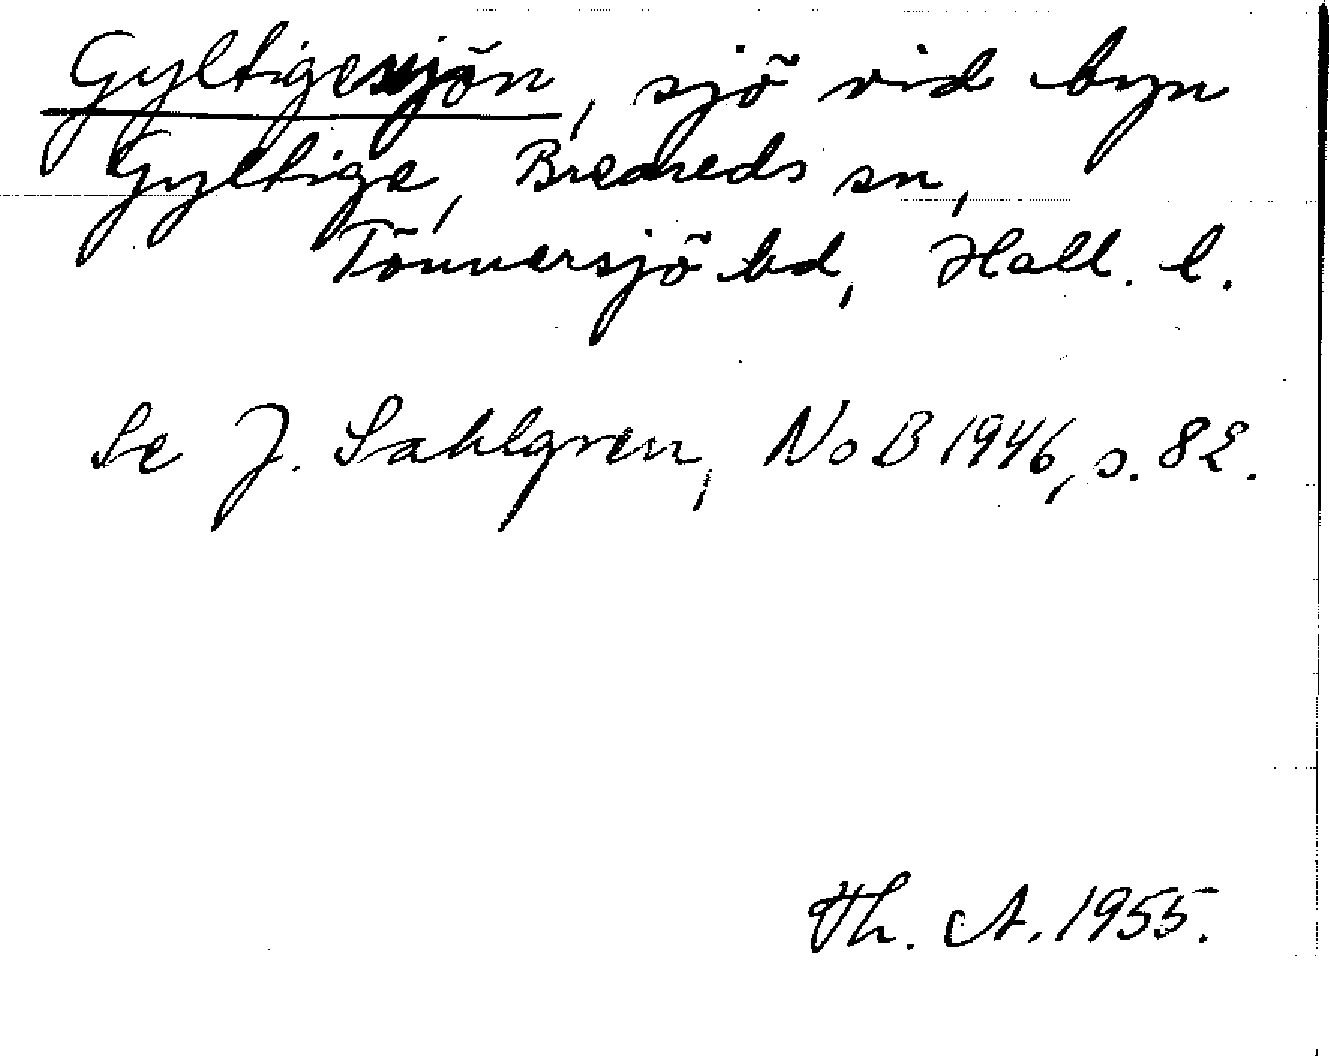 Gyltigesjön, sjö vid byn
Gyltige, Breareds sn,
Tönnersjö hd, Hall. l.
Se J. Sahlgren, NoB 1946, s. 82.
Th. A. 1955.